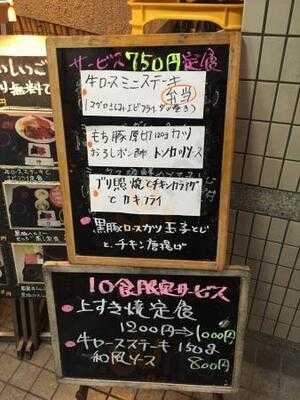 サービス750円定食
牛ロースミニステーキ
弁当
もち豚厚切120gカツ
おろしポン酢 トンカツソース
ブリ照焼でチキンカラアゲ
でカキフライ
黒豚ロースカツ玉子とじ
と、チキン唐揚げ
10食限定サービス
上すき焼定食
1200円⇒1000円
牛ロースステーキ150g
和風ソース 800円